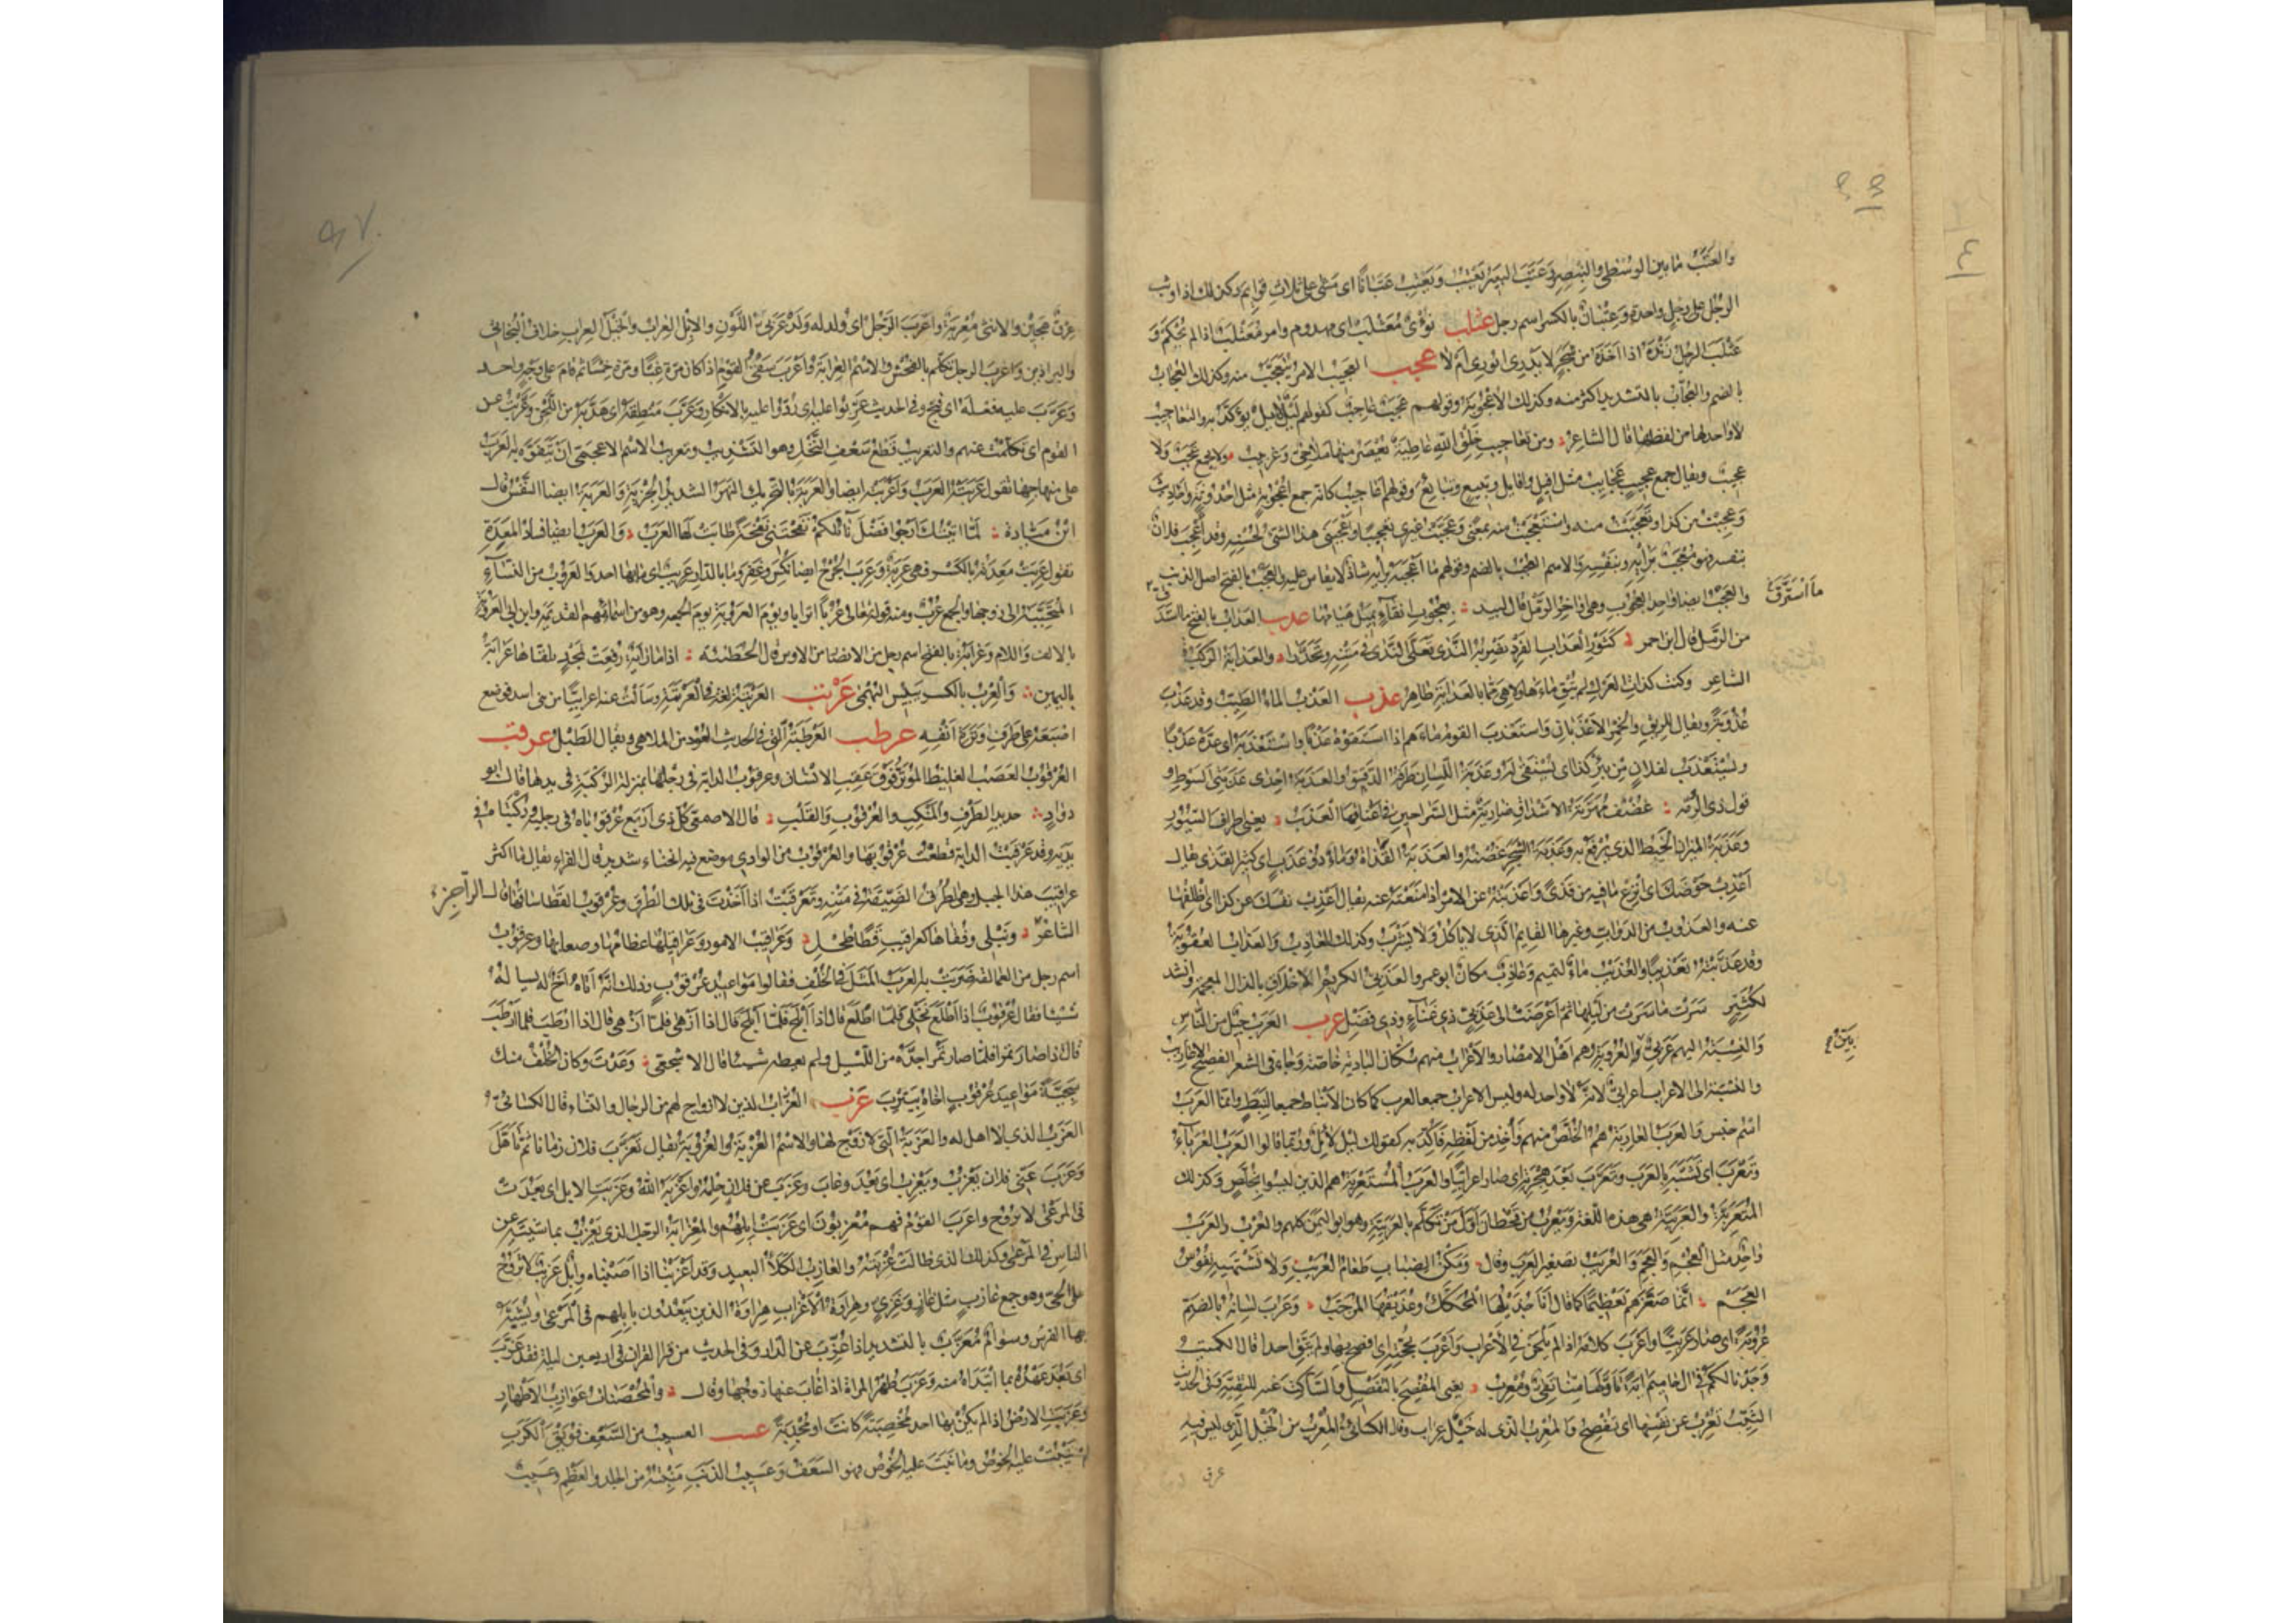 والعَتَبُ ما بين الوُسْطى والبِنْصِر وعَتَبَ البعيرُ يَعْتِبُ ويَعْتُبُ عَتَبَانًا اى مشى على ثلاث قوائم وكذلك اذا وثب
الرجُل على رجلٍ واحدة وعِتْبانُ بالكسر اسم رجل عثلب نُؤْىٌ مُعَثْلَبٌ اى مهدوم وامر مُعَثْلَبٌ اذا لم يُحْكَم وَ
عَثْلَبَ الرجُل زَنْدَهُ اذا اخَذَهُ من شجرٍ لا يَدْرِى ايُورِى ام لا عجب العجيب الامر يُتَعَجَّبُ منه وكذلك العجاب
بالضم والعُجّاب بالتشديد اكثر منه وكذلك الاعْجُوبة وقولهم عَجَبٌ عاجِبٌ كقولهم لَيْلٌ لايل يؤكّد به والتعاجيب
لا واحد لها من لفظها قال الشاعر ومن تعاجيب خَلْقِ اللّه غاطِيَةٌ يُعْصَرُ منها مُلَاحِىٌّ وغِرْبِيبُ ولا يجمع عَجَبٌ ولا
عجيبٌ ويقال جمع عجيبٍ عجايب مثل افيلٍ وافايل وتبيع وتبايع وقولهم اعاجيب كانه جمع اعجوبة مثل احدوثة واحاديث
وعجبت من كذا وتعجّبت منه واستعجبت منه بمعنًى وعجّبت غيرى تعجيبا واعجبنى هذا الشئ لحُسْنه وقد اُعْجِبَ فلانٌ
بنفسه فهو مُعْجَبٌ برأيه وبنفسه والاسم العُجْب بالضم وقولهم ما اَعْجَبَهُ برأيه شاذّ لا يقاس عليه والعَجْب بالفتح اصل الذنب
والعجب ايضا واحد العجوب وهى اواخر الرمل قال لبيد بعُجوبِ انقاءٍ يميل هيامها عدب العداب بالفتح ما استدق
ما استَرَقَّ
من الرّمل قال ابن احمر كثَوْرِ العَدابِ الفَرْدِ يَضْرِبُهُ النَّدى تَعَلَّى النَّدى فى متنه وتَحَدَّرا والعدابة الرَّكَب
الشاعر وكنت كذاتِ العَرْكِ لم تُبْقِ ماءها ولا هى مما بالعدابة طاهر عذب العَذْبُ الماء الطيّب وقد عَذُبَ
عُذُوبةً ويقال للريق والخمر الاعذبان واستعذب القوم ماءهم اذا استقوه عَذْبًا واستعذبه اى عدّه عذبا
ويُسْتَعْذَبُ لفلان من بئر كذا اى يُستقى له وعَذَبَةُ اللّسان طَرَفُه الدقيق والعَذَبَة احدى عَذَبَتَى السّوط و
قول ذى الرمّة غُضْفٌ مُهَرَّتَةُ الاشداق ضارِيَةٌ مثل السّراحين فى اعناقها العَذَبُ يعنى اطراف السيور
وعَذَبَةُ الميزان الخيط الذى يُرْفَع به وعذبة الشجر غصنه والعَذَبَة القَذاة وماءٌ ذو عَذَبٍ اى كثير القذى يقال
اَعْذِبْ حَوْضَكَ اى انزع ما فيه من قَذًى واعذبته عن الامر اذا منعته عنه يقال اَعْذِبْ نفسك عن كذا اى اظلِفْها
عنه والعَذُوب من الدوابّ وغيرها القايم الذى لا ياكل ولا يشرب وكذلك العاذب والعذاب العقوبة
وقد عَذَّبْتُهُ تعذيبًا والعُذَيْب ماءٌ لتميم وعاذب مكان ابو عمرو العَذَبِىُّ الكريم الاخلاق بالذال المعجمة وانشد
لكُثَيِّر سَرَتْ ما سَرَتْ من لَيْلِها ثم اَعْرَضَتْ الى عَذَبِىٍّ ذى غَناءٍ وذى فَضْلِ عرب العرب جيل من الناس
والنسبة اليهم عربىّ بيّن العُروبة وهم اهل الامصار والاعراب منهم سُكّان البادية خاصّة وجاء فى الشعر الفصيح الاعاريب
بَيّنُ
والنسبة الى الاعراب اعرابىّ لانه لا واحد له وليس الاعراب جمعا لعرب كما كان الانباط جمعا لنبط وانما العرب
اسم جنس والعرب العاربة هم الخُلَّص منهم واُخِذَ من لفظه فاُكّد به كقولك ليل لايل وربما قالوا العرب العرباء
وتعرّب اى تشبّه بالعرب وتعرّب بعد هجرته اى صار اعرابيّا والعرب المستعربة هم الذين ليسوا بخُلَّصٍ وكذلك
المتعرّبة والعربيّة هى هذه اللغة ويَعْرُب بن قَحْطان اول من تكلّم بالعربيّة وهو ابو اليمن كلهم والعُرْب والعَرَب
واحد مثل العُجْم والعَجَم والعُرَيْب تصغير العرب وقال ومَكْنُ الضِباب طعام العُرَيْب ولا تشتهيه نفوس
العجم انما صغّرهم تعظيما كما قال انا جُذَيْلُها المُحَكَّك وعُذَيْقُها المُرَجَّب وعَرُبَ لسانه بالضم
عُروبةً اى صار عربيًّا واعرب كلامه اذا لم يلحن فى الاعراب واعرب بحجّته اى افصح بها ولم يتّق احدا قال الكميت
وَجَدْنا لكم فى آل حاميم آيةً تأوّلها منا تقىٌّ ومُعْرِبُ يعنى المُفْصِحَ بالتفضيل والساكت عنه للتقيّة وفى الحديث
الثيّب تُعْرِب عن نفسها اى تُفْصِح والمُعْرِب الذى له خيل عِراب وقال الكسائىّ المُعْرِب من الخيل الذى ليس فيه
عرق
عِرْقٌ هجين والانثى مُعْرِبَة واعرب الرجل اى وُلد له ولد عربى اللّون والابل العِراب والخيل العراب خلاف البخاتىّ
والبراذين واعرب الرجل تكلّم بالفحش والاسم العِرابة واعرب سَقْىُ القوم اذا كان مرّة غِبًّا ومرّة خِمْسًا ثم قام على وجهٍ واحد
وعرّب عليه فعله اى قبّح وفى الحديث عَرِّبُوا عليه اى رُدُّوا عليه بالانكار وعرّب منطقه اى هذّبه من اللحن وعرّبت عن
القوم اى تكلّمت عنهم والتعريب قَطْع سَعَف النخل وهو التشذيب وتعريب الاسم الاعجمى ان تتفوّه به العرب
على منهاجها تقول عرّبته العرب واعربته ايضا والعَرَبَة بالتحريك النهر الشديد الجرية والعربة ايضا النفس قال
ابن ميّادة لمّا اتيتُك ارجو فضل نائلكم نَفَحْتَنى نَفْحَةً طابت لها العرب والعرب ايضا فساد المعدة
تقول عَرِبَتْ معدته بالكسر فهى عَرِبَة وعَرِبَ الجُرْح ايضا نُكِسَ وغَفِرَ وما بالدار عريب اى ما بها احد والعَروب من النساء
المتحبّبة الى زوجها والجمع عُرُبٌ ومنه قوله تعالى عُرُبًا اترابا ويوم العَروبة يوم الجمعة وهو من اسمائهم القديمة وابن ابى العَروبة
بالالف واللام وعَرابَة بالفتح اسم رجل من الانصار من الاوس قال الحطيئة اذا ما رايةٌ رُفِعَتْ لمجدٍ تلقّاها عرابة
باليمين والعِرْب بالكسر يبيس البُهْمَى عرتب العَرْتَبَة لغة فى العَرْتَمَة وسألت عنه اعرابيًّا من بنى اسد فوضع
اصبعه على طرف وَتَرَة انفه عرطب العَرْطَبَة التى فى الحديث العُود من الملاهى ويقال الطّبل عرقب
العُرْقُوب العَصَب الغليظ المُوَتَّر فوق عَقِب الانسان وعرقوب الدابة فى رجلها بمنزلة الرُّكْبَة فى يدها قال ابو
دوادٍ حديدُ الطَّرْفِ والمَنْكِبِ والعُرْقُوبِ والقَلْبِ قال الاصمعى كل ذى اَرْبَع عُرْقوباه فى رجليه ورُكْبَتاه فى
يديه وقد عرقبتُ الدابة قطعت عرقوبها والعرقوب من الوادى موضع فيه انحناء شديد قال الفراء يقال ما اكثر
عراقيبَ هذا الجبل وهى الطُّرُق الضيّقة فى متنه وتعرقبت اذا اخذت فى تلك الطرق وعرقوب القطا ساقها قال الراجز
الشاعر ونَبْلى وفُقاها كعراقيبِ قَطًا طُحْلِ وعراقيب الامور وعراقيلها عظامها وصعابها وعرقوب
اسم رجل من العمالقة ضَرَبَتْ به العرب المثل فى الخُلْف فقالوا مواعيد عرقوب وذلك انه اتاه اخ له يسأله
شيئا فقال عرقوب اذا اطلع نخلى فلمّا اطلع قال اذا ابلح فلمّا ابلح قال اذا ازهى فلمّا ازهى قال اذا ارطب فلما ارطب
قال اذا صار تمرا فلمّا صار تمرا جدّه من الليل ولم يعطه شيئا قال الاشجعى وَعَدْتَ وكان الخُلْفُ منك
سَجِيَّةً مواعيدَ عرقوبٍ اخاه بيَتْرَبَ عزب العُزّاب الذين لا ازواج لهم من الرجال والنساء قال الكسائى
العَزَب الذى لا اهل له والعَزَبَة التى لا زوج لها والاسم العُزْبَة والعُزُوبَة يقال تعزّب فلان زمانا ثم تأهّل
وعَزَبَ عنّى فلان يَعْزُب ويَعْزِب اى بَعُدَ وغاب وعزب عن فلان حِلْمُه واَعْزَبَه اللّه وعزبت الابل اى بعدت
فى المرعى لا تروح واعزب القوم فهم مُعْزِبُون اى عَزَبَتْ ابلهم والمِعْزابَة الرجل الذى يعزب بماشيته عن
الناس فى المرعى وكذلك الذى طالت عُزْبَتُه والعازب الكلأ البعيد وقد اعزبنا اذا اصبناه وابل عَزِيبٌ لا تروح
على الحىّ وهو جمع عازب مثل غازٍ وغَزِىٍّ وهِراوة الاعزاب هراوة الذين يَبْعُدون بابلهم فى المرعى ويُشبّه
بها الفرس وسوام مُعَزَّب بالتشديد اذا عُزِّبَ عن الدار وفى الحديث من قرأ القرآن فى اربعين ليلة فقد عزّب
اى بَعُدَ عهده بما ابتدأه منه وعَزَبَ طُهْر المرأة اذا غاب عنها زوجها وقال والمُحْصَناتُ عوازِبُ الاطهار
وعَزَبَت الارض اذا لم يكن بها احد مُخْصِبَةً كانت او مُجْدِبَةً عسب العسيب من السَّعَف فُوَيْقَ الكَرَب
لم ينبت عليه الخُوص وما نبت عليه الخوص فهو السعف وعسيب الذنب مَنْبِتُه من الجلد والعَظْم وعسيب